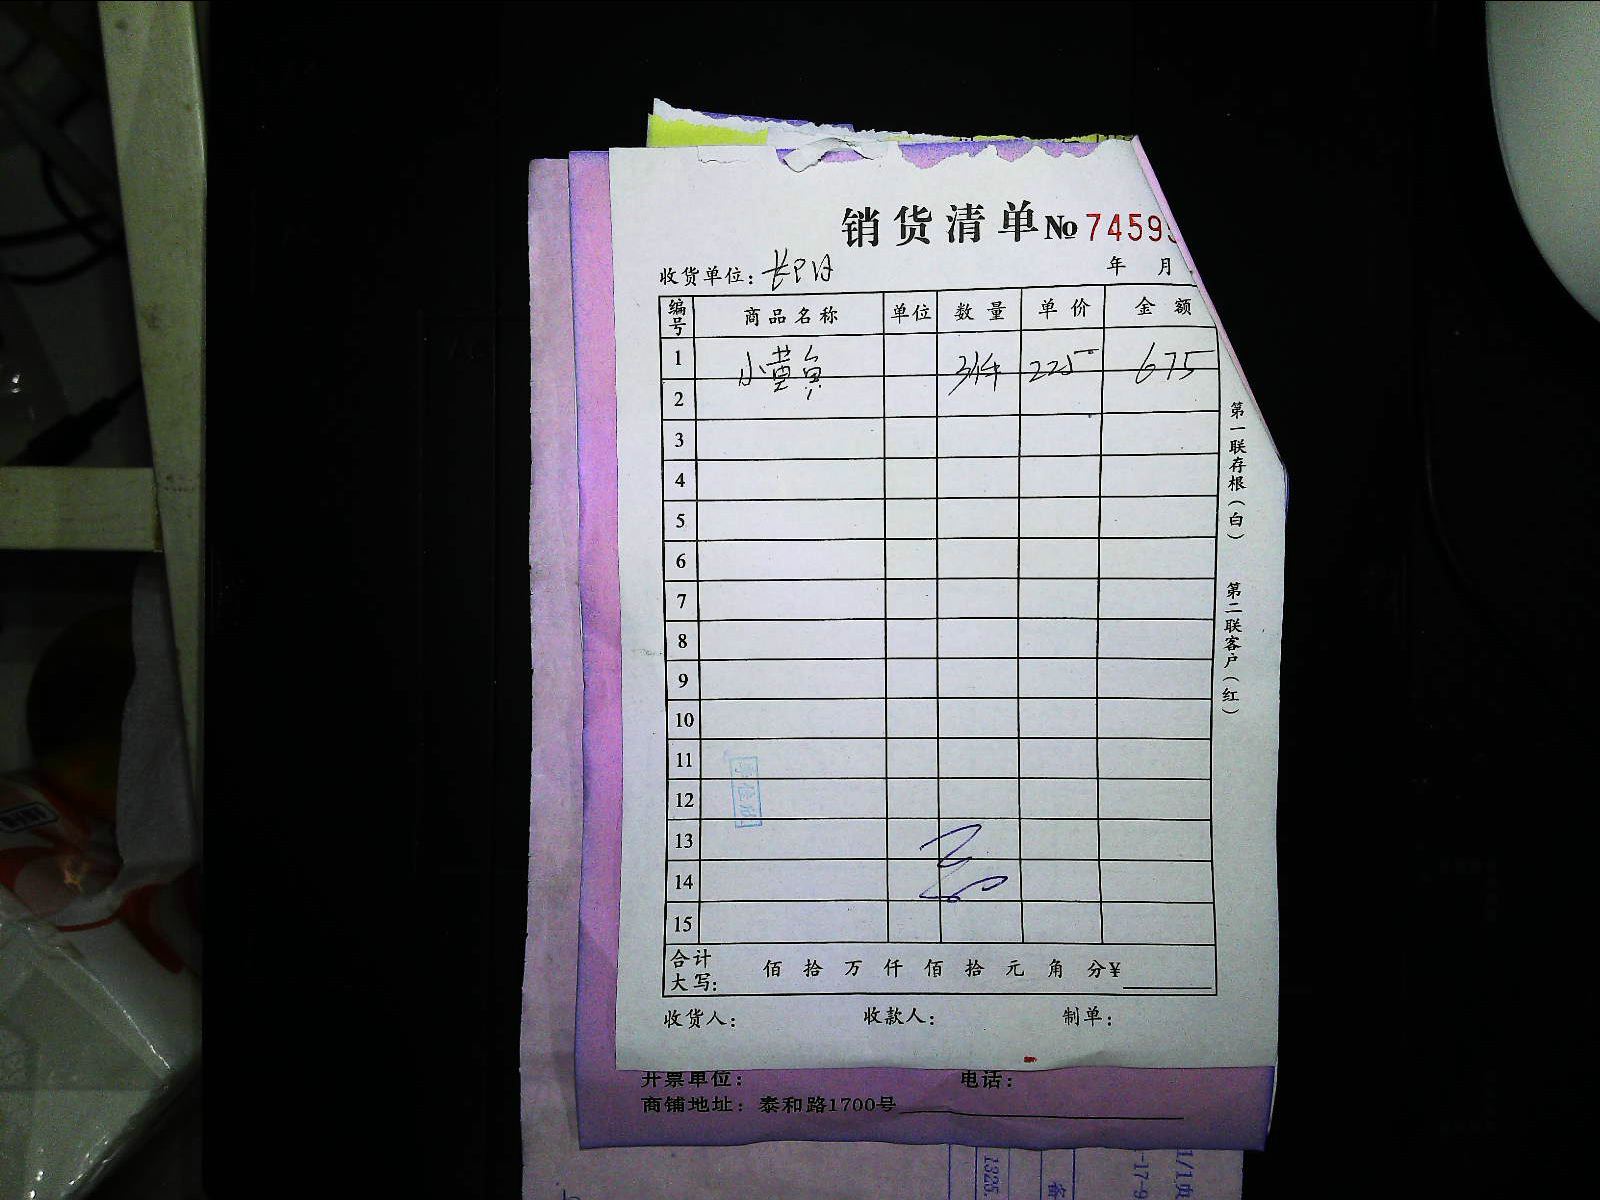 销货清单 № 7459
收货单位：
年 月
编号 商品名称 单位 数量 单价 金额
1 小黄鱼 3件 225- 675
2
3
4
5
6
7
8
9
10
11
12
13
14
15
合计大写： 佰 拾 万 仟 佰 拾 元 角 分¥
收货人： 收款人： 制单：
第一联存根（白） 第二联客户（红）
开票单位： 电话：
商铺地址：泰和路1700号
1325.
1/1页
-17-9